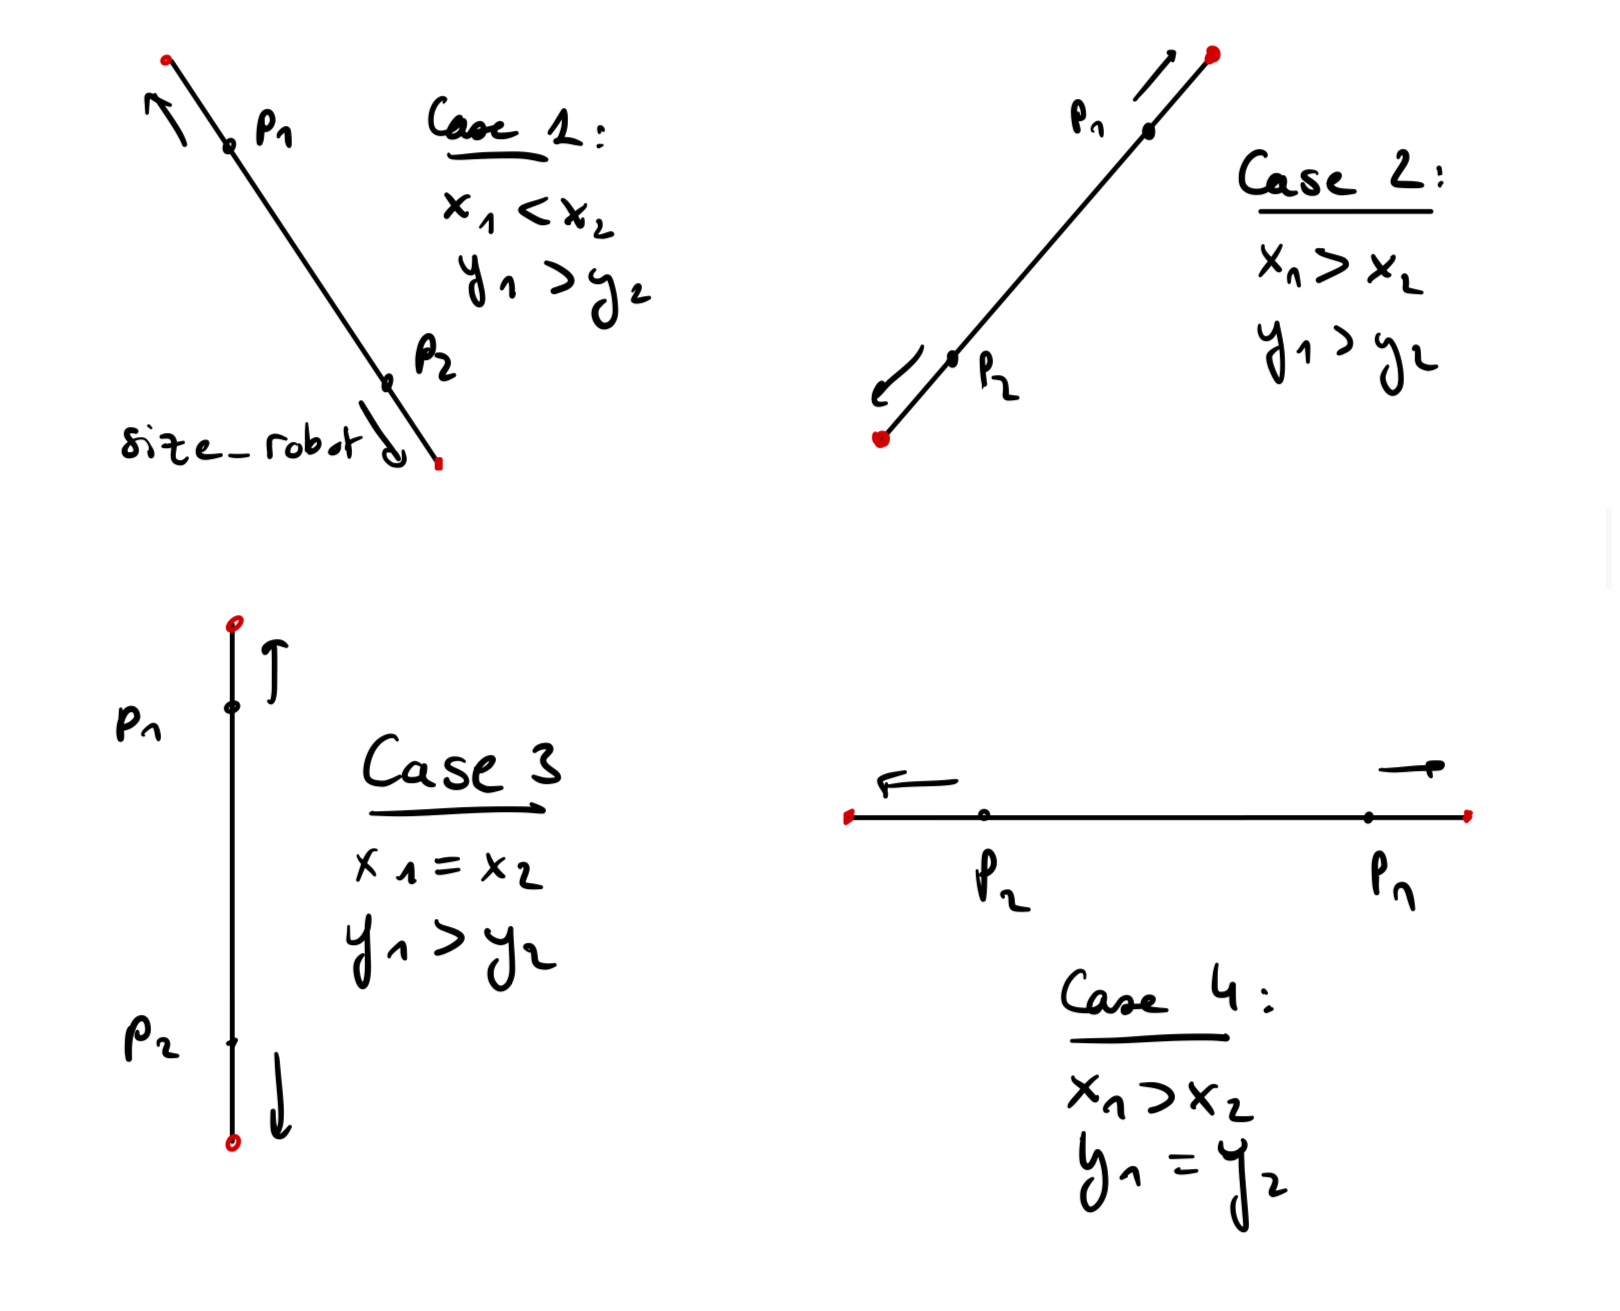 P1
Case 1:
x1 < x2
y1 > y2
P2
size_robot
P1
Case 2:
x1 > x2
y1 > y2
P2
P1
Case 3
x1 = x2
y1 > y2
P2
P2
P1
Case 4:
x1 > x2
y1 = y2